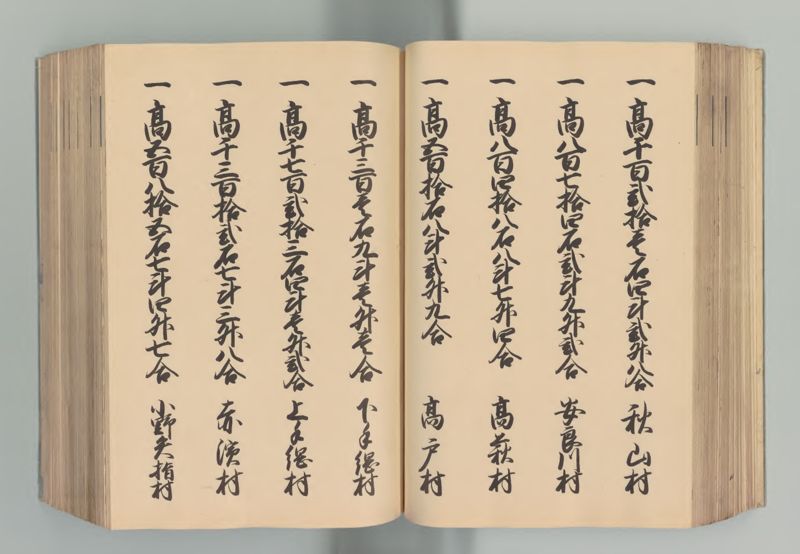 一 高千百弐拾壱石四斗弐升八合 秋山村
一 高八百七拾四石弐斗九升弐合 安良川村
一 高八百四拾八石八斗七升四合 高萩村
一 高五百拾石八斗弐升九合 高戸村
一 高千三百壱石九斗壱升壱合 下手綱村
一 高千七百弐拾三石四斗壱升弐合 上手綱村
一 高千三百拾弐石七斗三升八合 赤濱村
一 高五百八拾五石七斗四升七合 小野矢指村